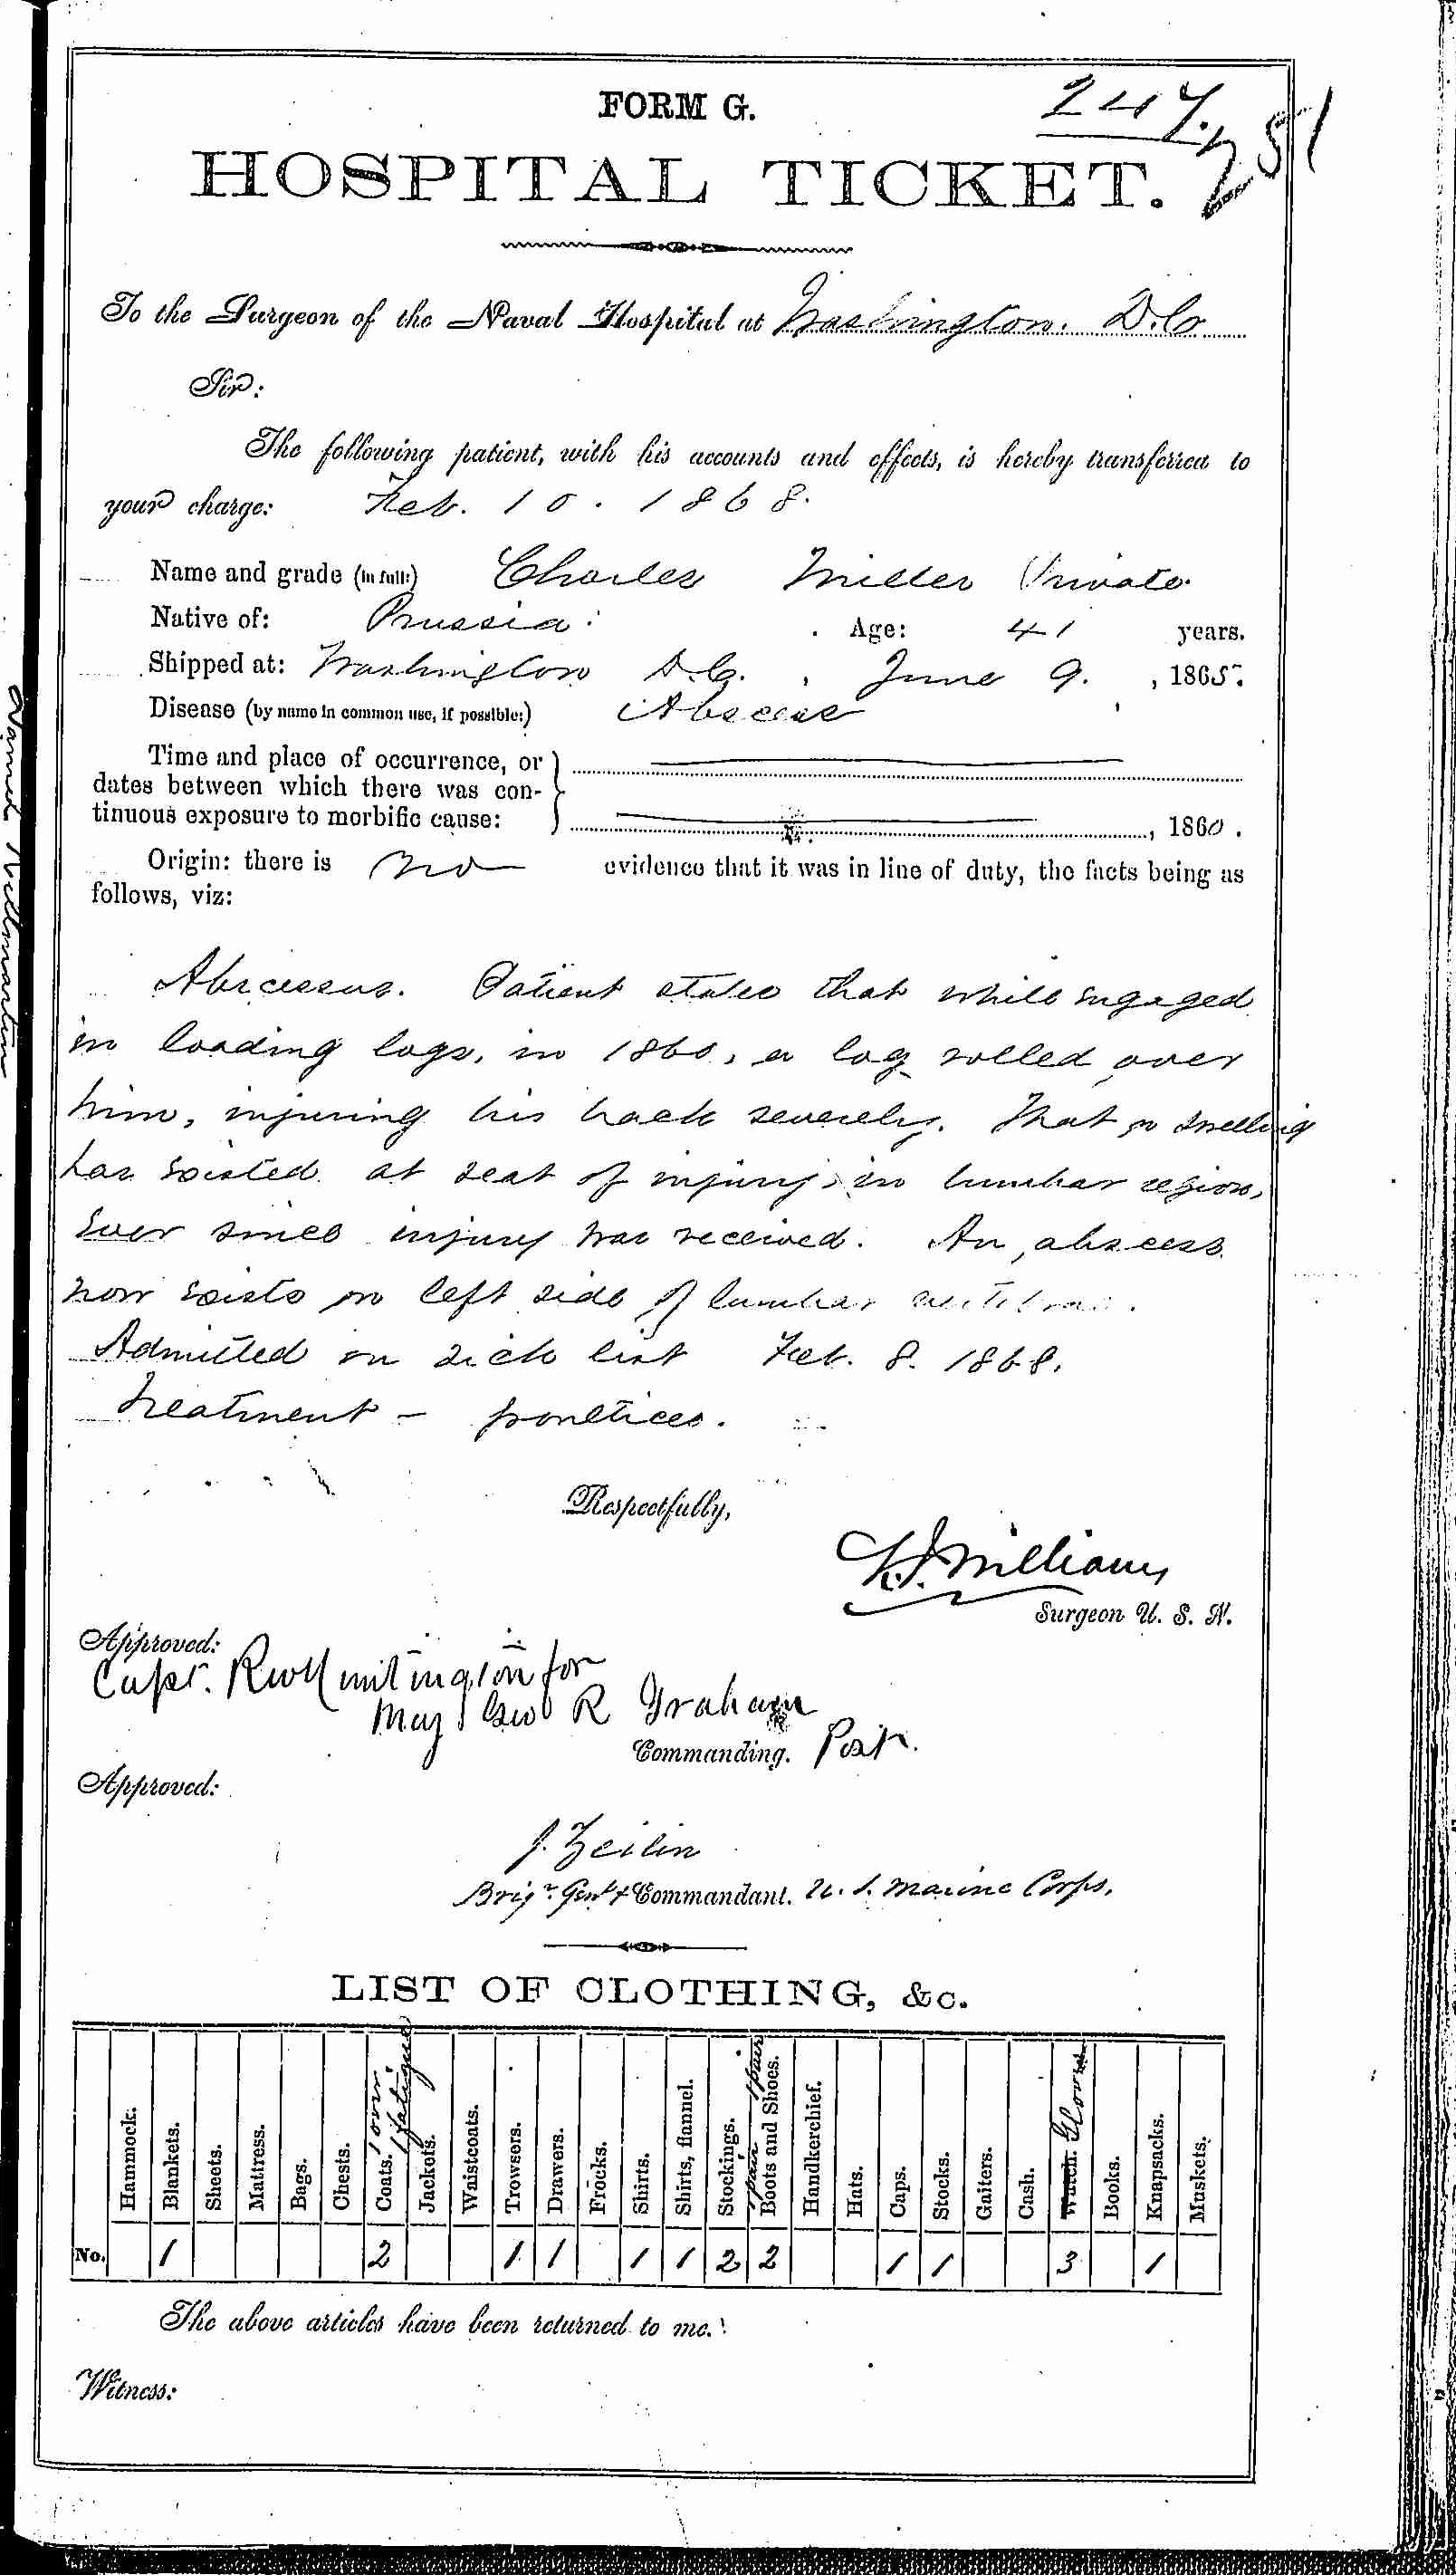 FORM G.
247.
251
HOSPITAL TICKET.
To the Surgeon of the Naval Hospital at Washington. D.C.
Sir:
The following patient, with his accounts and effects, is hereby transferred to
your charge: Feb. 10. 1868.
Name and grade (in full:) Charles Miller Private
Native of: Prussia. Age: 41 years.
Shipped at: Washington D.C. , June 9. , 1865.
Disease (by name in common use, if possible:) Abscess
Time and place of occurrence, or
dates between which there was con-
tinuous exposure to morbific cause: , 1860.
Origin: there is no evidence that it was in line of duty, the facts being as
follows, viz:
Abscessus. Patient states that while engaged
in loading logs, in 1860, a log rolled over
him, injuring his back severely. That a swelling
has existed at seat of injury, in lumbar region,
ever since injury was received. An abscess
now exists on left side of lumbar vertebrae.
Admitted on sick list Feb. 8. 1868.
Treatment - poultices.
Respectfully,
Williams
Surgeon U. S. N.
Approved:
Capt. R W Huntington for
Maj Geo R Graham
Commanding. Post.
Approved:
J. Zeilin
Brigr. Genl & Commandant. U. S. Marine Corps.
LIST OF CLOTHING, &c.
Hammock. Blankets. Sheets. Mattress. Bags. Chests. Coats. 1 fatigue Jackets. Waistcoats. Trowsers. Drawers. Frocks. Shirts. Shirts, flannel. Stockings. 1 pair Boots and Shoes. 1 pair Handkerchief. Hats. Caps. Stocks. Gaiters. Cash. Watch. Gloves Books. Knapsacks. Muskets.
No. 1 2 1 1 1 1 2 2 1 1 3 1
The above articles have been returned to me.
Witness: